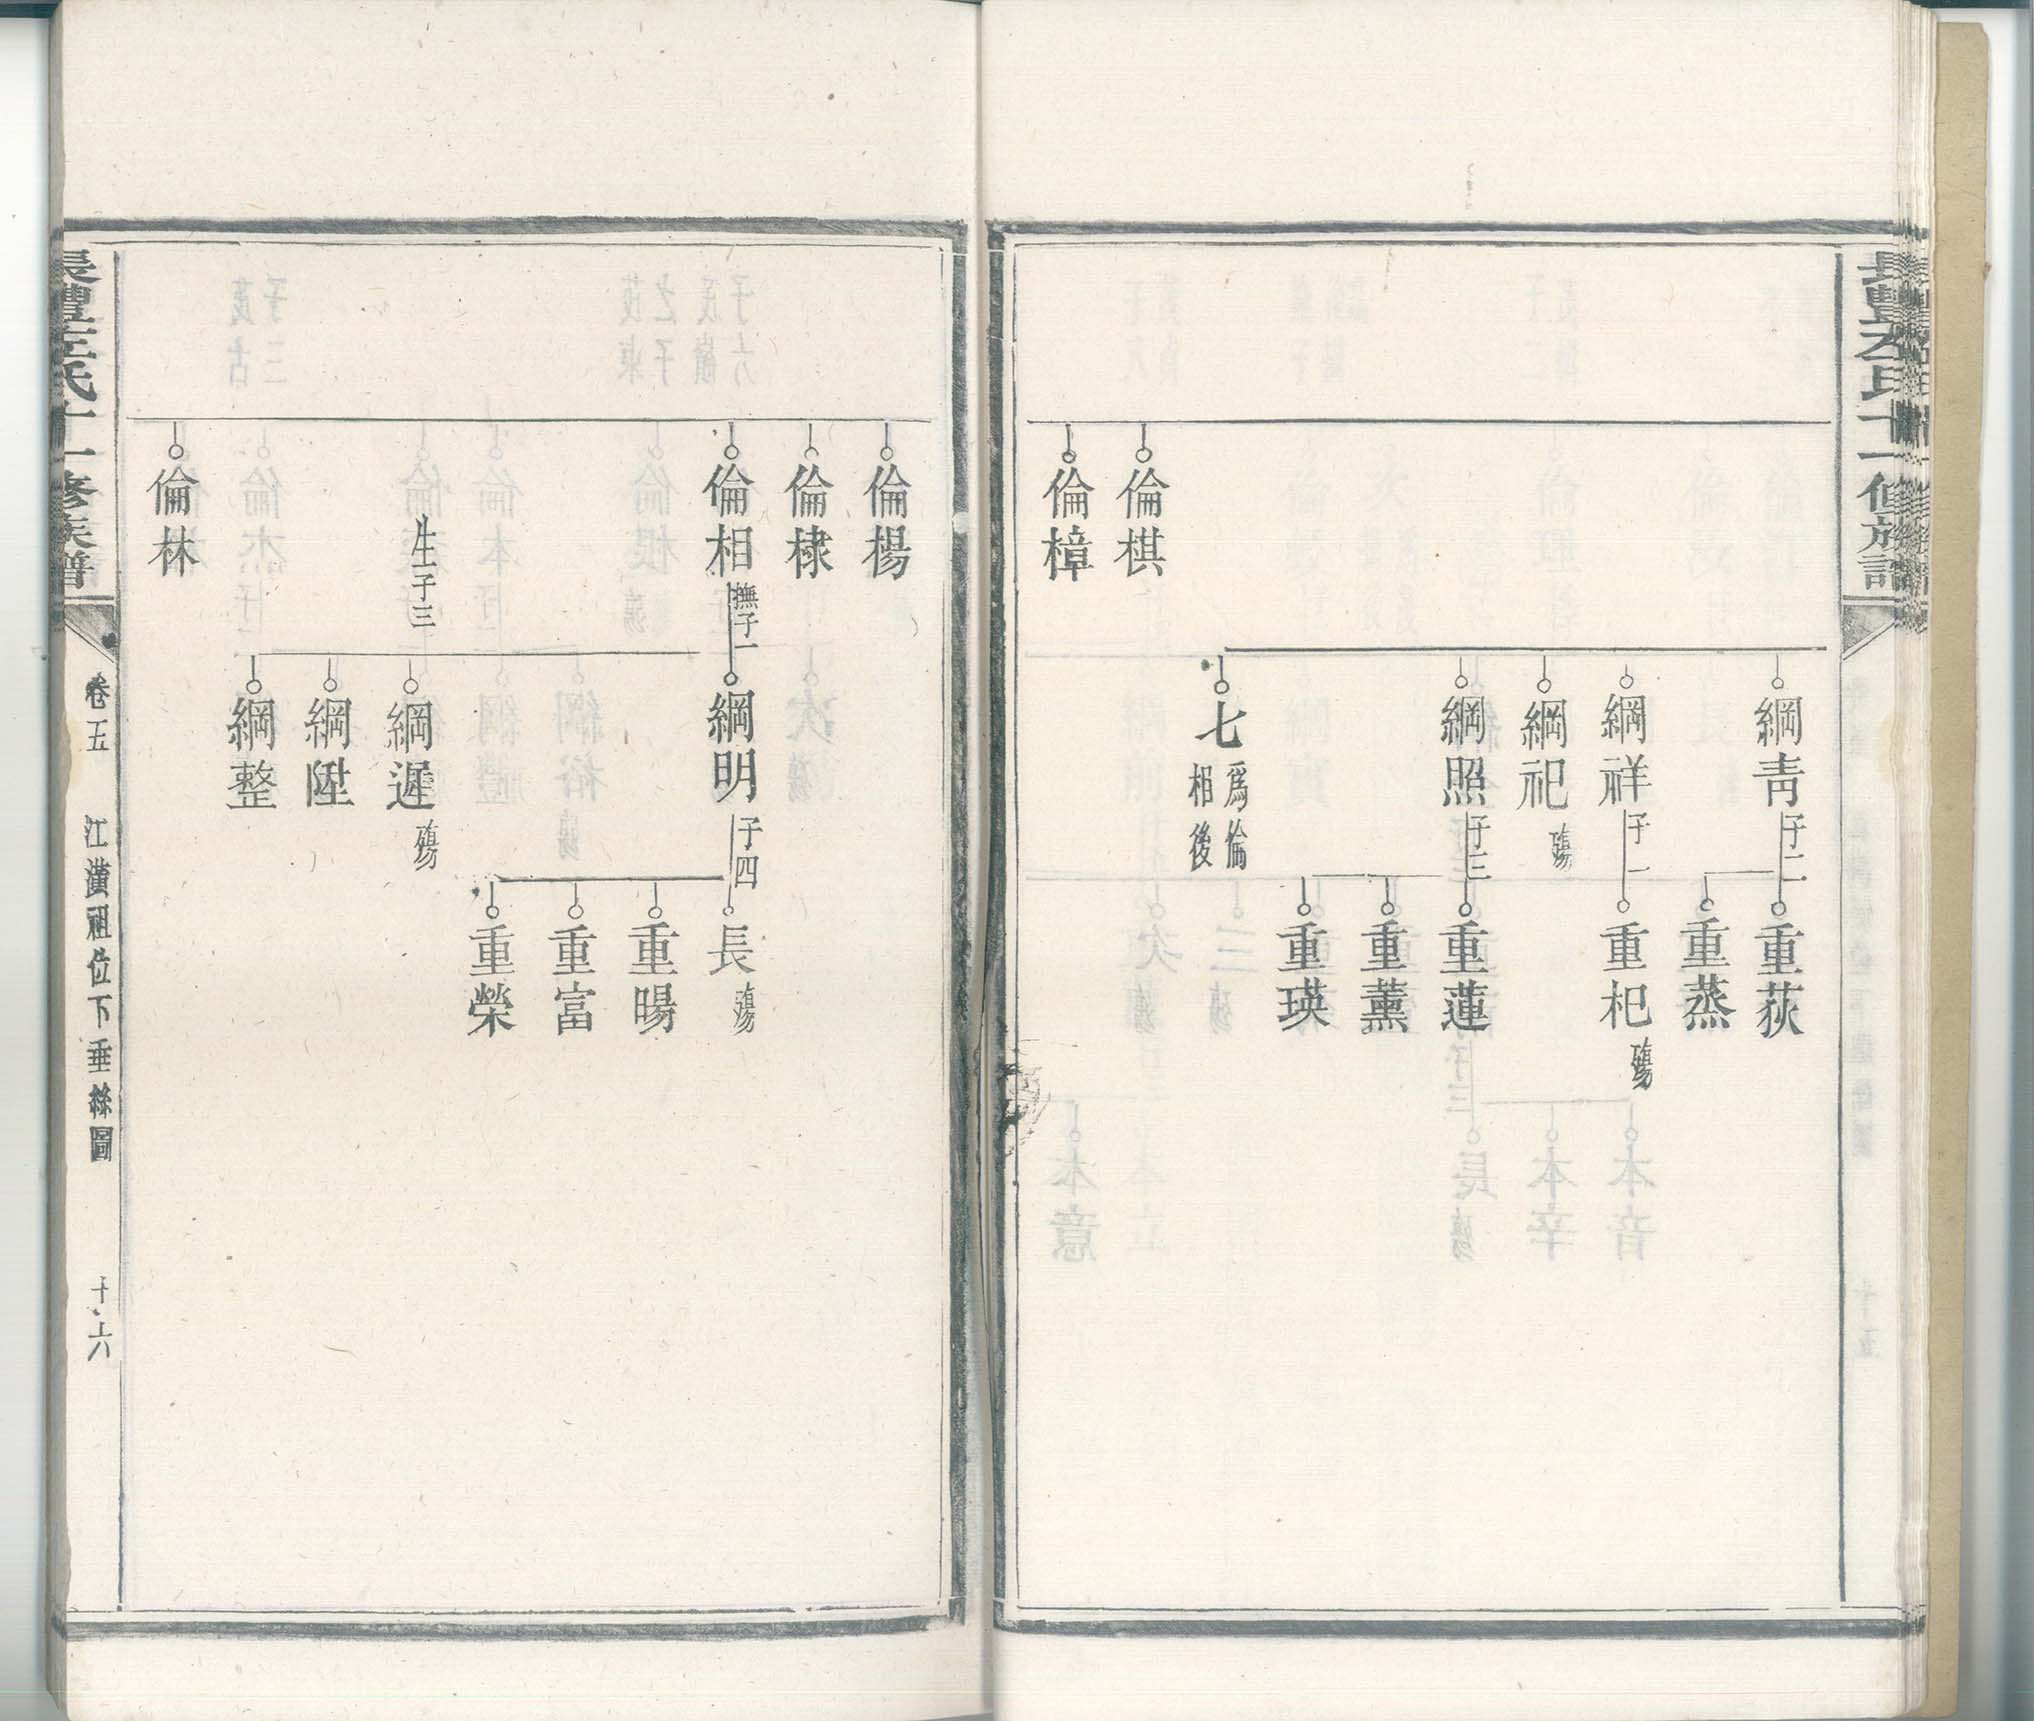 倫棋
倫樟
綱青 子二
綱祥 子一
綱祀 殤
綱照 子三
七 爲倫相後
重荻
重蒸
重杞 殤
重蓮
重薰
重瑛
倫楊
倫棣
倫相 撫子一
生子三
倫林
綱明 子四
綱遲 殤
綱陞
綱整
長 殤
重暘
重富
重榮
氏十一修族譜
卷五
江漢祖位下垂絲圖
十六